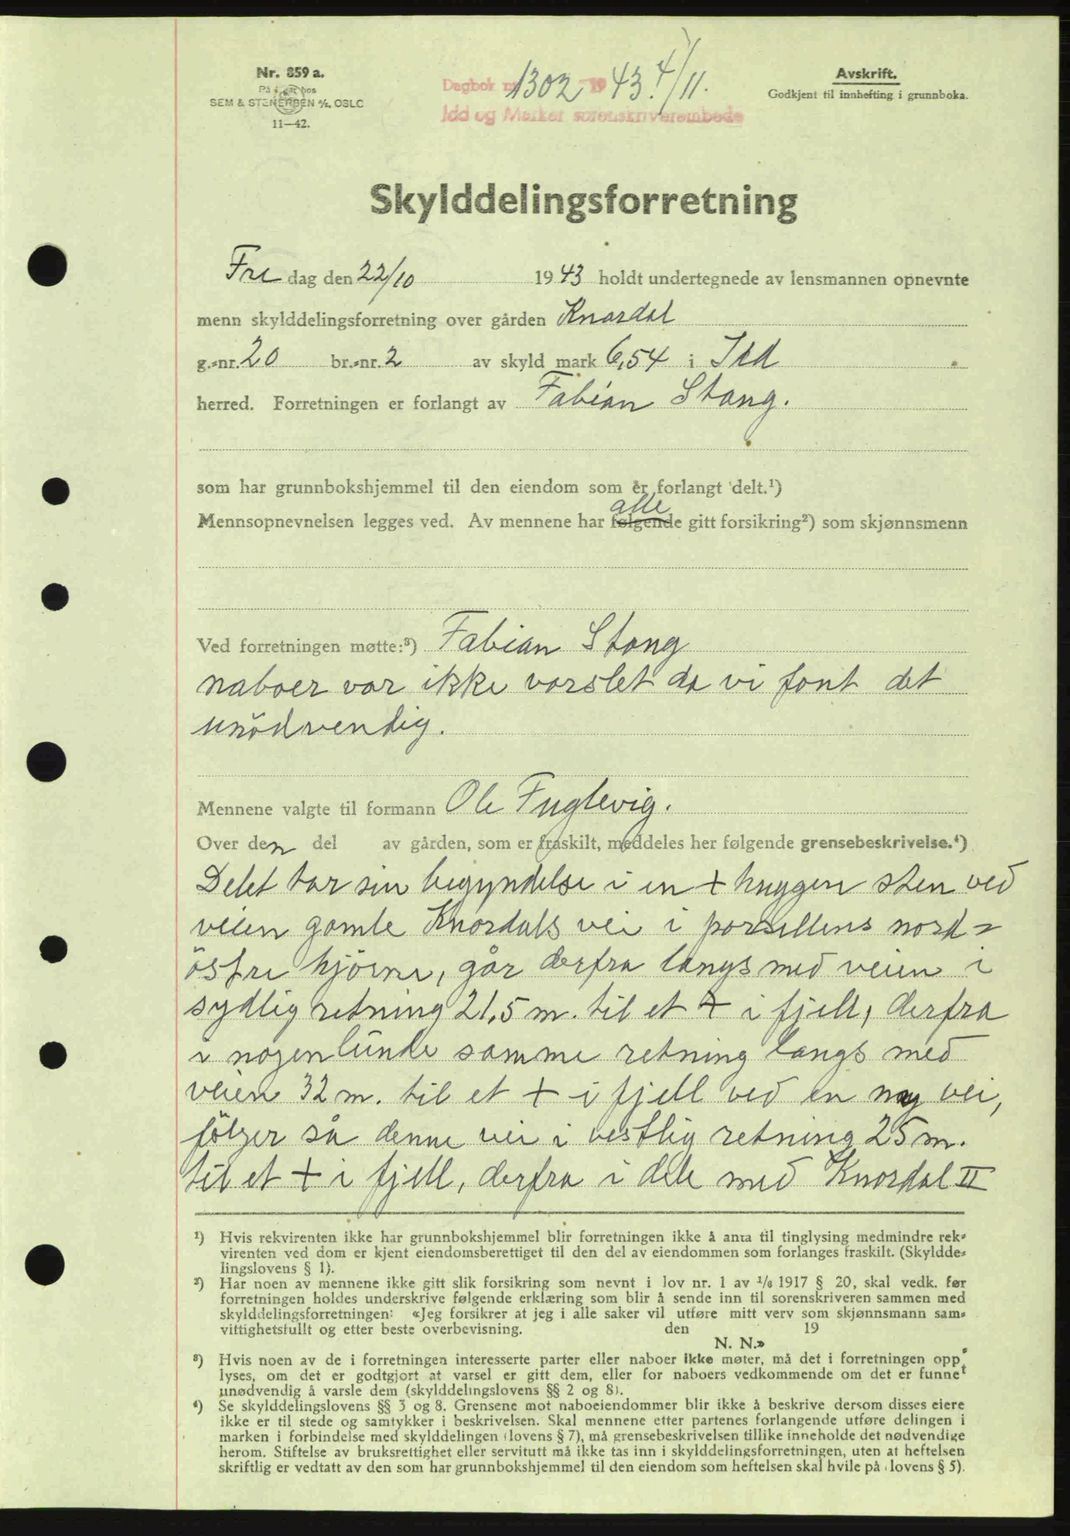 Nr. 859 a.
På lager hos
SEM & STENERSEN A/S. OSLO
11—42.
Dagbok nr. 1302 1943. 4/11.
Idd og Marker sorenskriverembede
Avskrift.
Godkjent til innhefting i grunnboka.
Skylddelingsforretning
Fre dag den 22/10 1943 holdt undertegnede av lensmannen opnevnte
menn skylddelingsforretning over gården Knardal
g.-nr. 20 br.-nr. 2 av skyld mark 6,54 i Idd
herred. Forretningen er forlangt av Fabian Stang.
som har grunnbokshjemmel til den eiendom som er forlangt delt.¹)
alle
Mennsopnevnelsen legges ved. Av mennene har følgende gitt forsikring²) som skjønnsmenn
Ved forretningen møtte:³) Fabian Stang
naboer var ikke varslet da vi fant det
unödvendig.
Mennene valgte til formann Ole Fuglevig.
Over den del av gården, som er fraskilt, meddeles her følgende grensebeskrivelse.⁴)
Delet tar sin begyndelse i en + huggen sten ved
veien gamle Knardals vei i parsellens nord=
östre hjörne, går derfra langs med veien i
sydlig retning 21,5 m. til et + i fjell, derfra
i nogenlunde samme retning langs med
veien 32 m. til et + i fjell ved en ny vei,
fölger så denne vei i vestlig retning 25 m.
til et + i fjell, derfra i dele med Knardal II
¹) Hvis rekvirenten ikke har grunnbokshjemmel blir forretningen ikke å anta til tinglysing medmindre rek-
virenten ved dom er kjent eiendomsberettiget til den del av eiendommen som forlanges fraskilt. (Skyldde-
lingslovens § 1).
²) Har noen av mennene ikke gitt slik forsikring som nevnt i lov nr. 1 av 1/6 1917 § 20, skal vedk. før
forretningen holdes underskrive følgende erklæring som blir å sende inn til sorenskriveren sammen med
skylddelingsforretningen: «Jeg forsikrer at jeg i alle saker vil utføre mitt verv som skjønnsmann sam-
vittighetsfullt og etter beste overbevisning. den 19
N. N.»
³) Hvis noen av de i forretningen interesserte parter eller naboer ikke møter, må det i forretningen opp
lyses, om det er godtgjort at varsel er gitt dem, eller for naboers vedkommende om det er funnet
unødvendig å varsle dem (skylddelingslovens §§ 2 og 8).
⁴) Se skylddelingslovens §§ 3 og 8. Grensene mot naboeiendommer blir ikke å beskrive dersom disses eiere
ikke er til stede og samtykker i beskrivelsen. Skal mennene etter partenes forlangende utføre delingen i
marken i forbindelse med skylddelingen (lovens § 7), må grensebeskrivelsen tillike inneholde det nødvendige
herom. Stiftelse av bruksrettighet eller servitutt må ikke tas inn i skylddelingsforretningen, uten at heftelsen
skriftlig er vedtatt av den som har grunnbokshjemmel til den eiendom som heftelsen skal hvile på (lovens § 5).